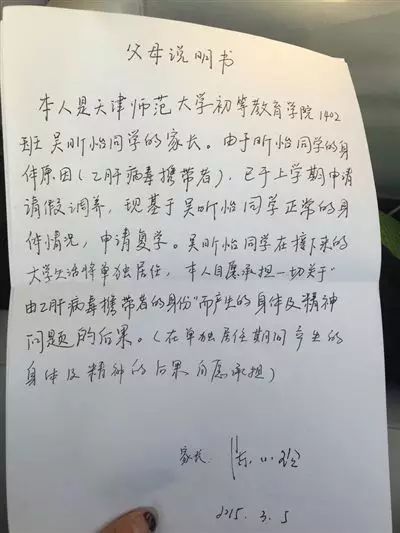 父母说明书
本人是天津师范大学初等教育学院1402
班吴昕怡同学的家长。由于昕怡同学的身
体原因(乙肝病毒携带者),已于上学期申请
请假调养,现基于吴昕怡同学正常的身
体情况,申请复学。吴昕怡同学在接下来的
大学生活将单独居住,本人自愿承担一切关于
由乙肝病毒携带者的身份”而产生的身体及精神
问题的后果。(在单独居住期间产生的
身体及精神的后果自愿承担)
家长:
2015.3.5